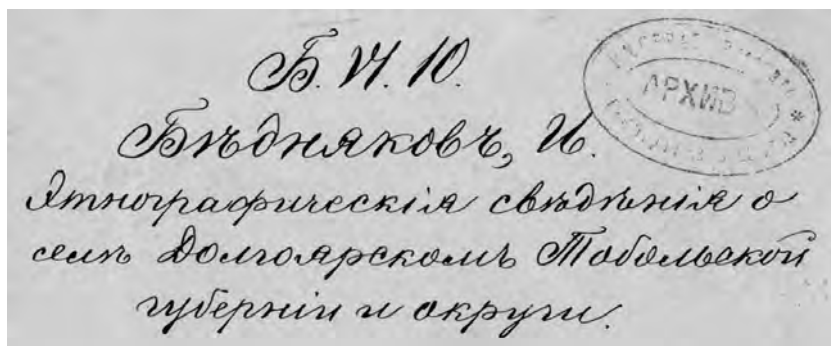 Б. VI. 10.
АРХИВ
Бѣдняковъ, И.
Этнографическія свѣдѣнія о
селѣ Долгоярскомъ Тобольской
губерніи и округи.